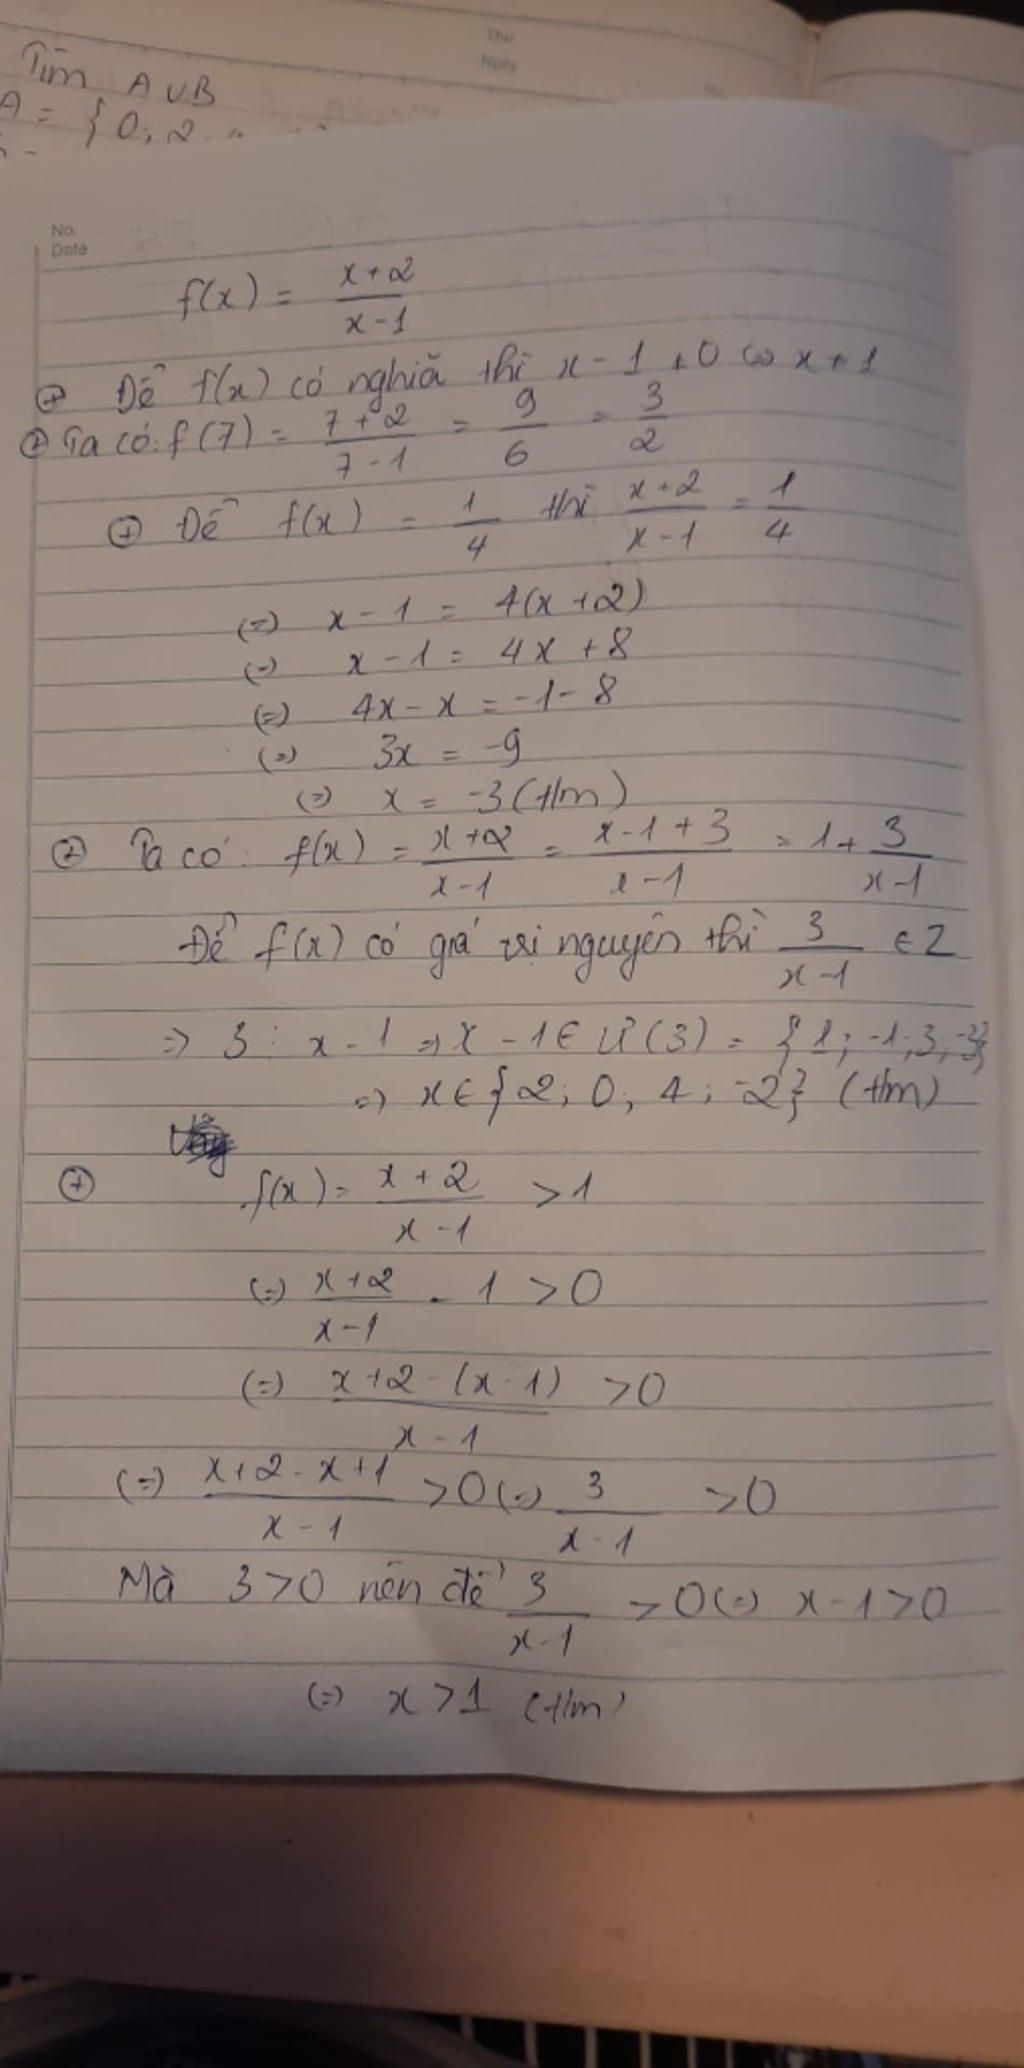 Thứ
Ngày
No.
Tìm A ∪ B
A = { 0; 2
No.
Date
f(x) = \frac{x+2}{x-1}
⊕ Để f(x) có nghĩa thì x - 1 ≠ 0 ⇔ x ≠ 1
⊕ Ta có: f(7) = \frac{7+2}{7-1} = \frac{9}{6} = \frac{3}{2}
⊕ Để f(x) = \frac{1}{4} thì \frac{x+2}{x-1} = \frac{1}{4}
(=) x - 1 = 4(x + 2)
(=) x - 1 = 4x + 8
(=) 4x - x = -1 - 8
(=) 3x = -9
(=) x = -3 (t/m)
⊕ Ta có: f(x) = \frac{x+2}{x-1} = \frac{x-1+3}{x-1} = 1 + \frac{3}{x-1}
Để f(x) có giá trị nguyên thì \frac{3}{x-1} ∈ Z
=> 3 ⋮ x - 1 => x - 1 ∈ Ư(3) = {1; -1; 3; -3}
=> x ∈ {2; 0; 4; -2} (t/m)
⊕ f(x) = \frac{x+2}{x-1} > 1
(=) \frac{x+2}{x-1} - 1 > 0
(=) \frac{x+2-(x-1)}{x-1} > 0
(=) \frac{x+2-x+1}{x-1} > 0 (=) \frac{3}{x-1} > 0
Mà 3 > 0 nên để \frac{3}{x-1} > 0 (=) x - 1 > 0
(=) x > 1 (t/m)